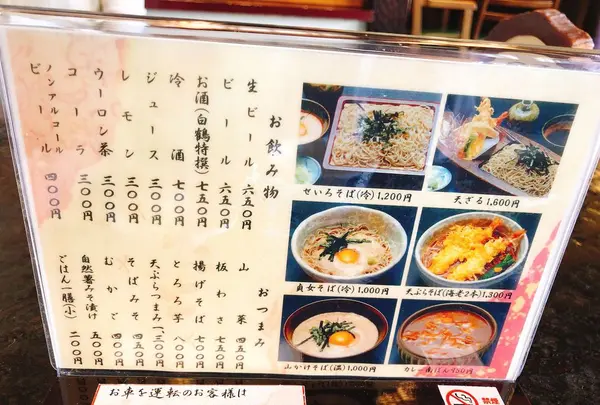 お飲み物
生ビール 六五〇円
ビール 六五〇円
お酒(白鶴特撰) 七五〇円
冷酒 七〇〇円
ジュース 三五〇円
レモン 三〇〇円
ウーロン茶 三〇〇円
コーラ 三〇〇円
ノンアルコールビール 四〇〇円
おつまみ
山菜 四五〇円
板わさ 七五〇円
揚げそば 五〇〇円
とろろ芋 八〇〇円
天ぷらつまみ 一,三〇〇円
そばみそ 四五〇円
むかご 四〇〇円
自然薯みそ漬け 五〇〇円
ごはん一膳(小) 二〇〇円
せいろそば(冷) 1,200円
天ざる 1,600円
貞女そば(冷) 1,000円
天ぷらそば(海老2本) 1,300円
山かけそば(温) 1,000円
カレー南ばん 950円
お車を運転のお客様は
禁煙